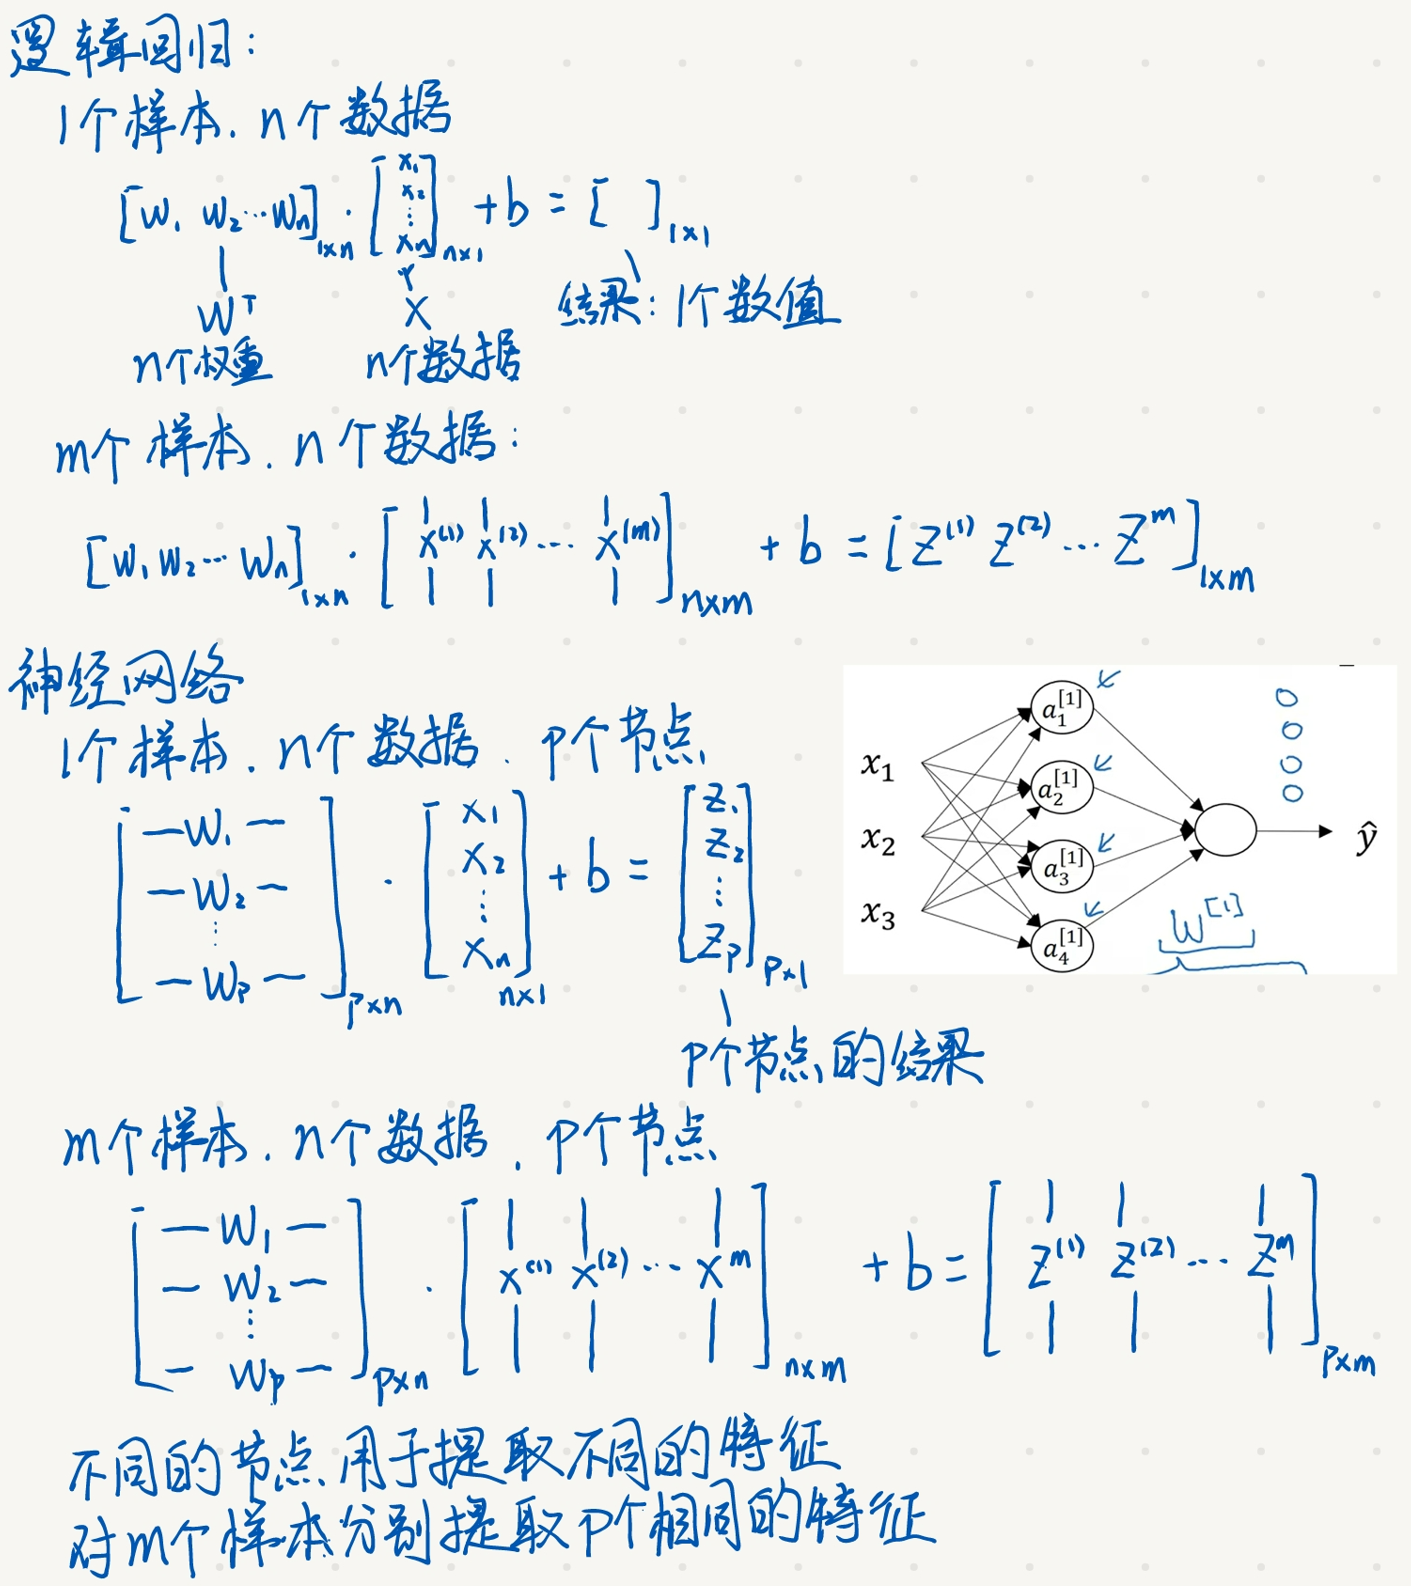 逻辑回归:
1个样本. n个数据
[w₁ w₂…wₙ]₁ₓₙ · [x₁ x₂ ⋮ xₙ]ₙₓ₁ + b = [ ]₁ₓ₁
Wᵀ X 结果: 1个数值
n个权重 n个数据
m个样本. n个数据:
[w₁ w₂… wₙ]₁ₓₙ · [x⁽¹⁾ x⁽²⁾ … x⁽ᵐ⁾]ₙₓₘ + b = [Z⁽¹⁾ Z⁽²⁾ … Zᵐ]₁ₓₘ
神经网络
1个样本. n个数据. P个节点
[—W₁— —W₂— ⋮ —Wₚ—]ₚₓₙ · [x₁ x₂ ⋮ xₙ]ₙₓ₁ + b = [Z₁ Z₂ ⋮ Zₚ]ₚₓ₁
P个节点的结果
x₁
x₂
x₃
a₁^[1]
a₂^[1]
a₃^[1]
a₄^[1]
ŷ
W^[1]
m个样本. n个数据. P个节点
[—W₁— —W₂— ⋮ —Wₚ—]ₚₓₙ · [x⁽¹⁾ x⁽²⁾ … xᵐ]ₙₓₘ + b = [Z⁽¹⁾ Z⁽²⁾ … Zᵐ]ₚₓₘ
不同的节点用于提取不同的特征
对m个样本分别提取P个相同的特征